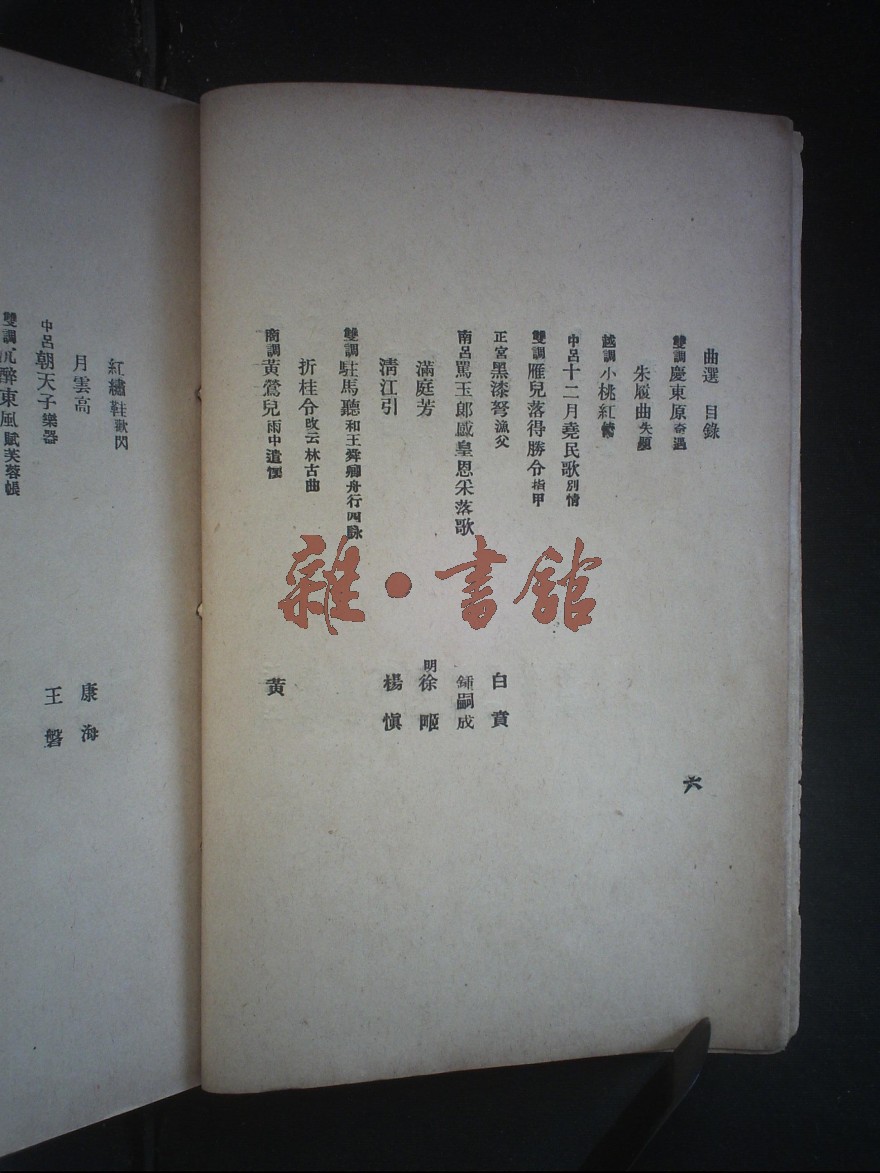 曲選 目錄
雙調慶東原奇遇
朱履曲失題
越調小桃紅
中呂十二月堯民歌別情
雙調雁兒落得勝令指甲
正宮黑漆弩漁父 白賁
南呂罵玉郎感皇恩采落歌 鍾嗣成
滿庭芳 明徐㖂
清江引 楊慎
雙調駐馬聽和王舜卿舟行四詠
折桂令改云林古曲
商調黃鶯兒雨中遣懷 黃
六
紅繡鞋歎閃
月雲高 康海
中呂朝天子樂器 王磐
雙調沉醉東風賦芙蓉帳
雜•書館